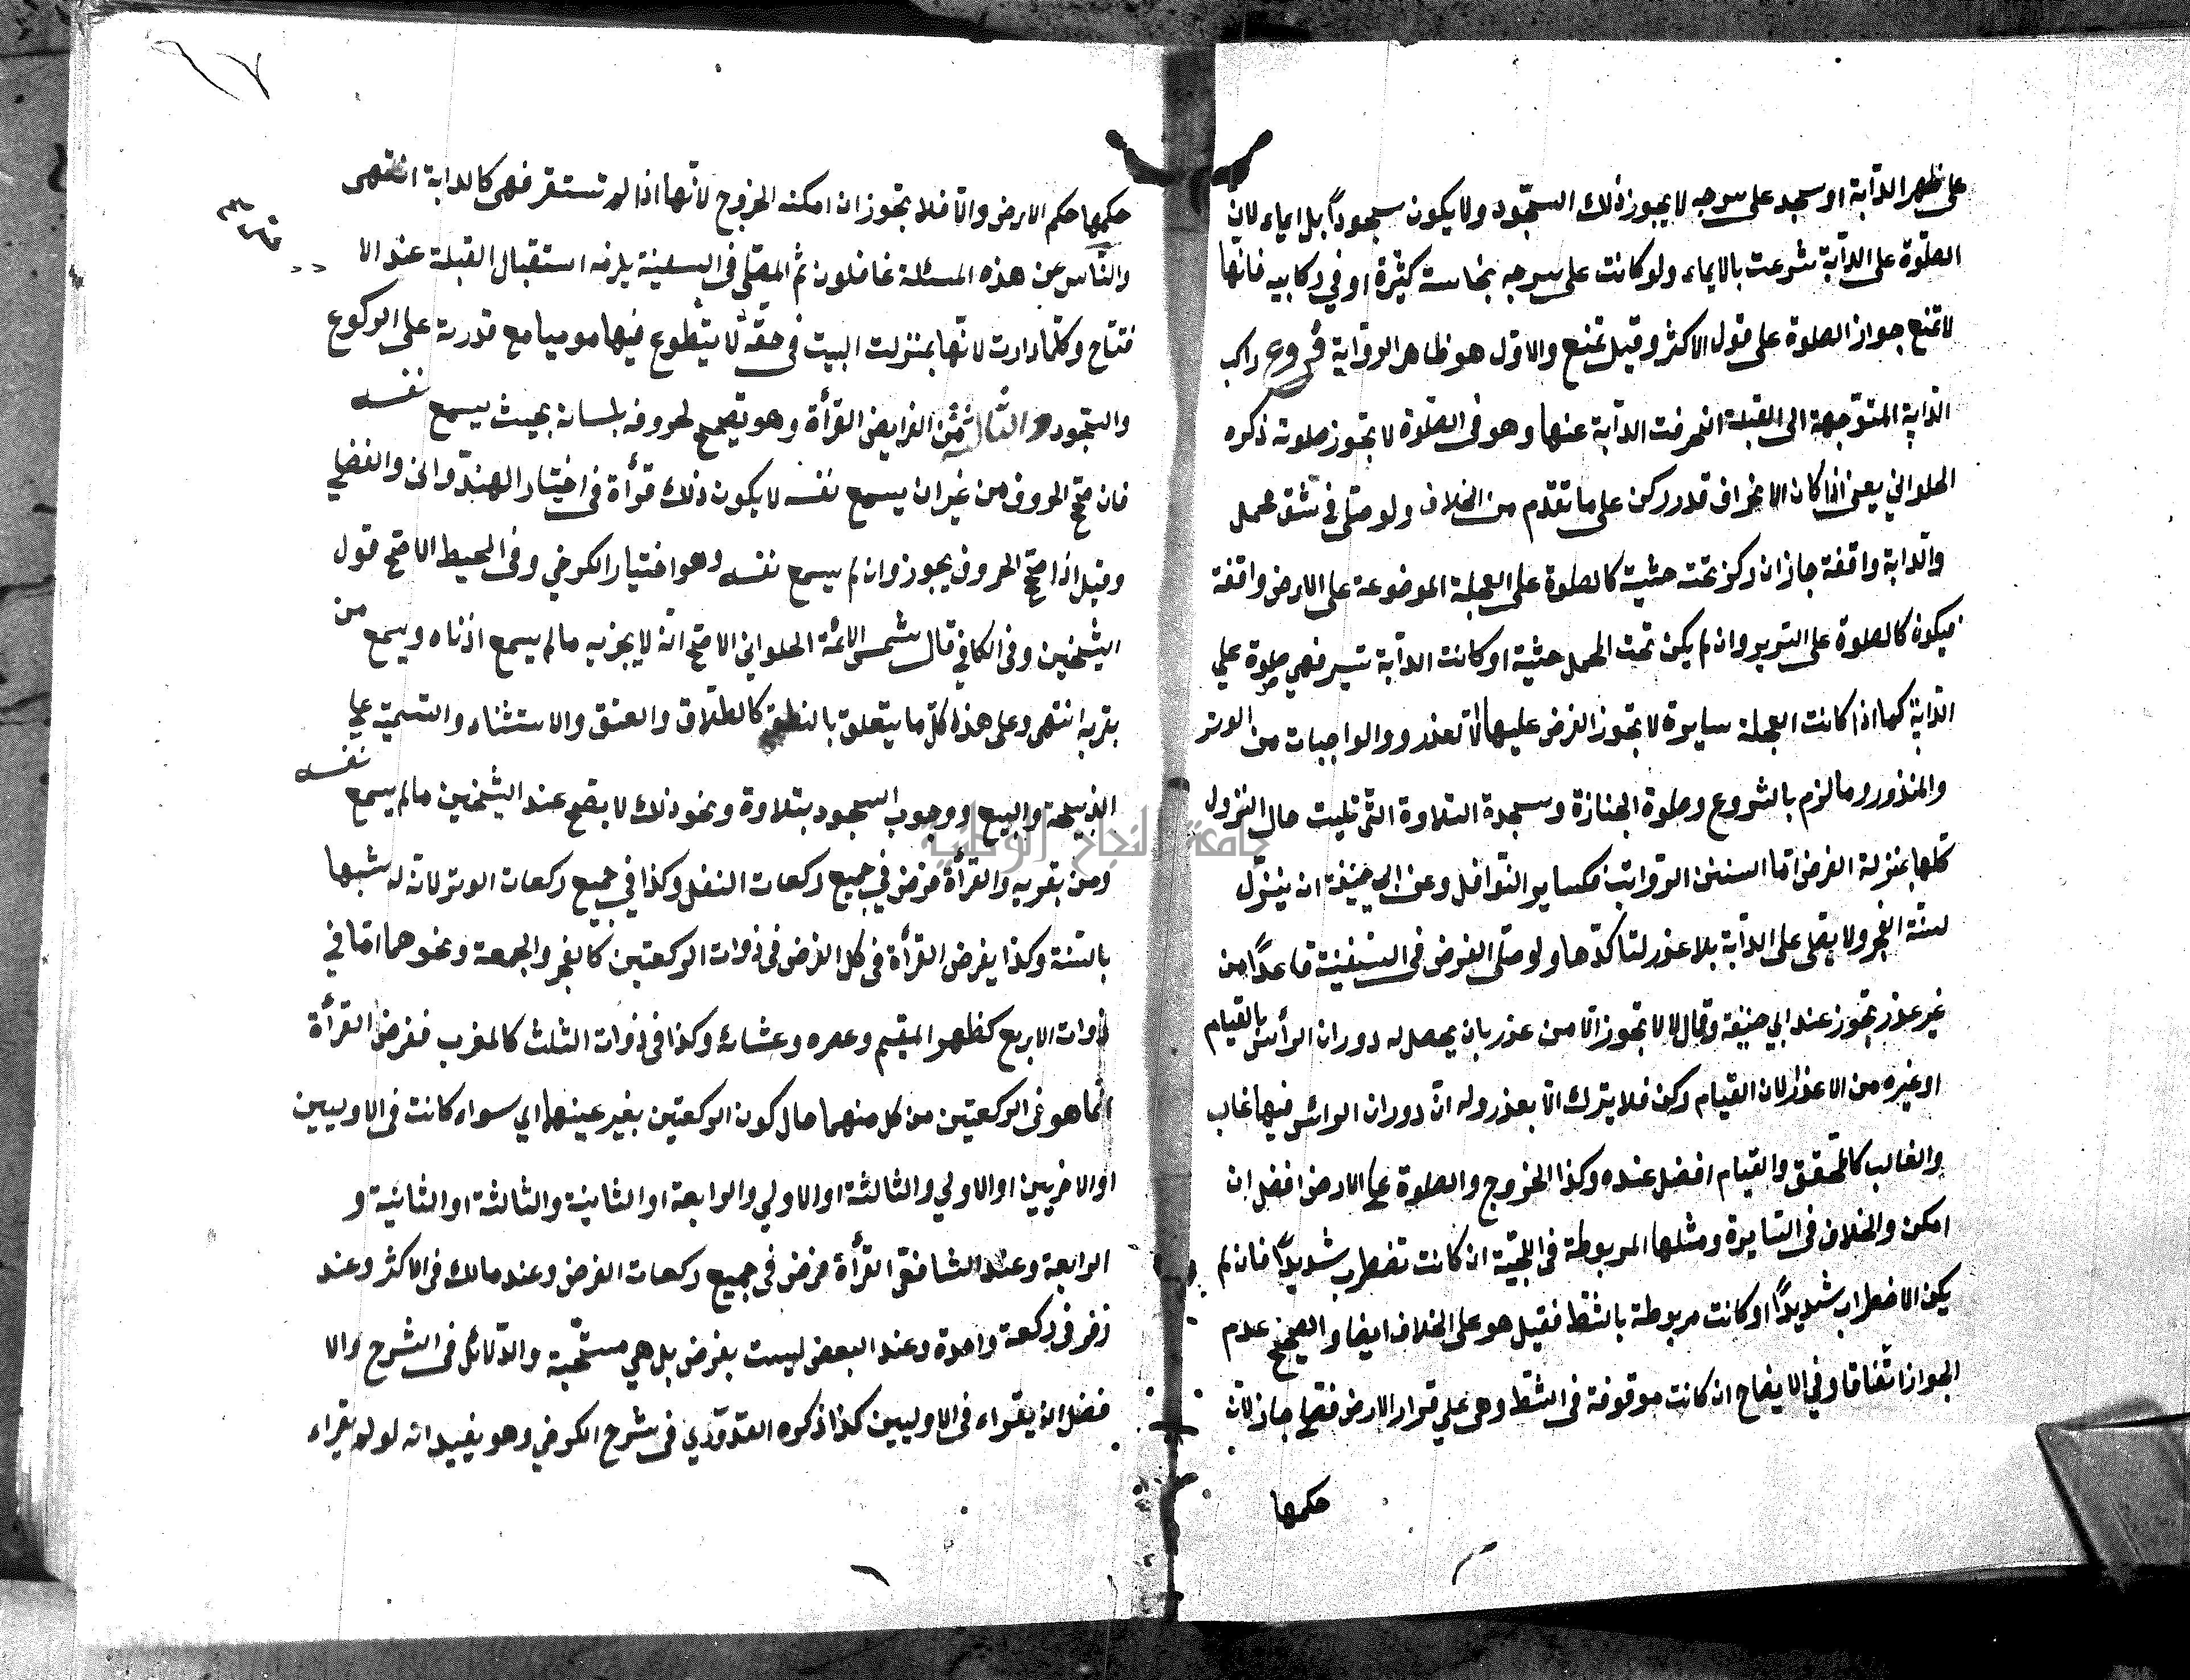 على ظهر الدآبة او سجد على سرجه لا يجوز ذلك السجود ولا يكون سجوداً بل ايماء لان
الصلوة على الدآبة شرعت بالايماء ولو كانت على سرجه نجاسة كثيرة او في ركابيه فانها
لا تمنع جواز الصلوة على قول الاكثر وقيل تمنع والاول هو ظاهر الرواية فروع راكب
الدابة المتوجهة الى القبلة انحرفت الدآبة عنها وهو في الصلوة لا تجوز صلوته ذكره
الحلواني يعني اذا كان الانحراف قدر ركن على ما تقدم من الخلاف ولو صلى في شق محمل
والدابة واقفة جاز ان ركز تحته خشبة كالصلوة على العجلة الموضوعة على الارض واقفة
فيكون كالصلوة على السرير وان لم يكن تحت المحمل خشبة او كانت الدآبة تسير فهي صلوة علي
الدابة كما اذا كانت العجلة سايرة لا تجوز الفرض عليها الا لعذر والواجبات من الوتر
والمنذور وما لزم بالشروع وصلوة الجنازة وسجدة التلاوة التي تليت حال النزول
كلها بمنزلة الفرض اما السنن الرواتب فكساير النوافل وعن ابي حنيفة ان ينزل
لسنة الفجر ولا يصلى على الدآبة بلا عذر لتاكدها ولو صلى الفرض في السفينة قاعداً من
غير عذر تجوز عند ابي حنيفة وقالا لا تجوز الا من عذر بان يحصل له دوران الرأس بالقيام
او غيره من الاعذار لان القيام ركن فلا يترك الا بعذر وله ان دوران الراس فيها غاب
والغالب كالمتحقق والقيام افضل عنده وكذا الخروج والصلوة على الارض افضل ان
امكن والخلاف في السايرة ومثلها المربوطة في اللجية ان كانت تضطرب شديداً فان لم
يكن الاضطراب شديداً او كانت مربوطة بالشط فقيل هو على الخلاف ايضا والصحيح عدم
الجواز اتفاقا وفي الايضاح ان كانت موقوفة في الشط وهي علي قرار الارض فصلى جاز لان
حكمها
٦٧
حكمها حكم الارض والا فلا يجوز ان امكنه الخروج لانها اذا لم تستقر فهي كالدابة انتهى
والناس عن هذه المسئلة غافلون ثم المصلى في السفينة يلزمه استقبال القبلة عند الا
فتتاح وكلما دارت لانها بمنزلت البيت في حقه لا يتطوع فيها موميا مع قدرته على الركوع
والسجود والثالثة من الفرايض القرأة وهو تصحيح لحروفه بلسانه بحيث يسمع نفسه
فان صحح الحروف من غير ان يسمع نفسه لا يكون ذلك قرأة في اختيار الهندواني والفضلي
وقيل اذا صحح الحروف يجوز وان لم يسمع نفسه وهو اختيار الكرخي وفي المحيط الاصح قول
الشيخين وفي الكافي قال شمس الائمة الحلواني الاصح انه لا يجزيه ما لم يسمع اذناه ويسمع من
بقربه انتهى وعلى هذا كل ما يتعلق بالنطق كالطلاق والعتق والاستثناء والتسمية علي
الذبيحة والبيع ووجوب السجود بتلاوة ونحو ذلك لا يصح عند الشيخين ما لم يسمع نفسه
ومن بقربه والقرأة فرض في جميع ركعات النفل وكذا في جميع ركعات الوتر لان له شبها
بالسنة وكذا يفرض القرأة في كل الفرض في ذوات الركعتين كالفجر والجمعة ونحوهما اما في
ذوات الاربع كظهر المقيم وعصره وعشائه وكذا في ذوات الثلث كالمغرب ففرض القرأة
انما هو في الركعتين من كل منهما حال كون الركعتين بغير عينهما اي سواء كانت في الاوليين
او الاخريين او الاولي والثالثة او الاولي والرابعة او الثانية والثالثة او الثانية و
الرابعة وعند الشافعى القرأة فرض في جميع ركعات الفرض وعند مالك في الاكثر وعند
زفر في ركعة واحدة وعند البعض ليست بفرض بل هي مستحبة والدلائل في الشرح والا
فضل ان يقراء في الاوليين كذا ذكره القدوري في شرح الكرخي وهو يفيد انه لو لم يقراء
جامعة النجاح الوطنية